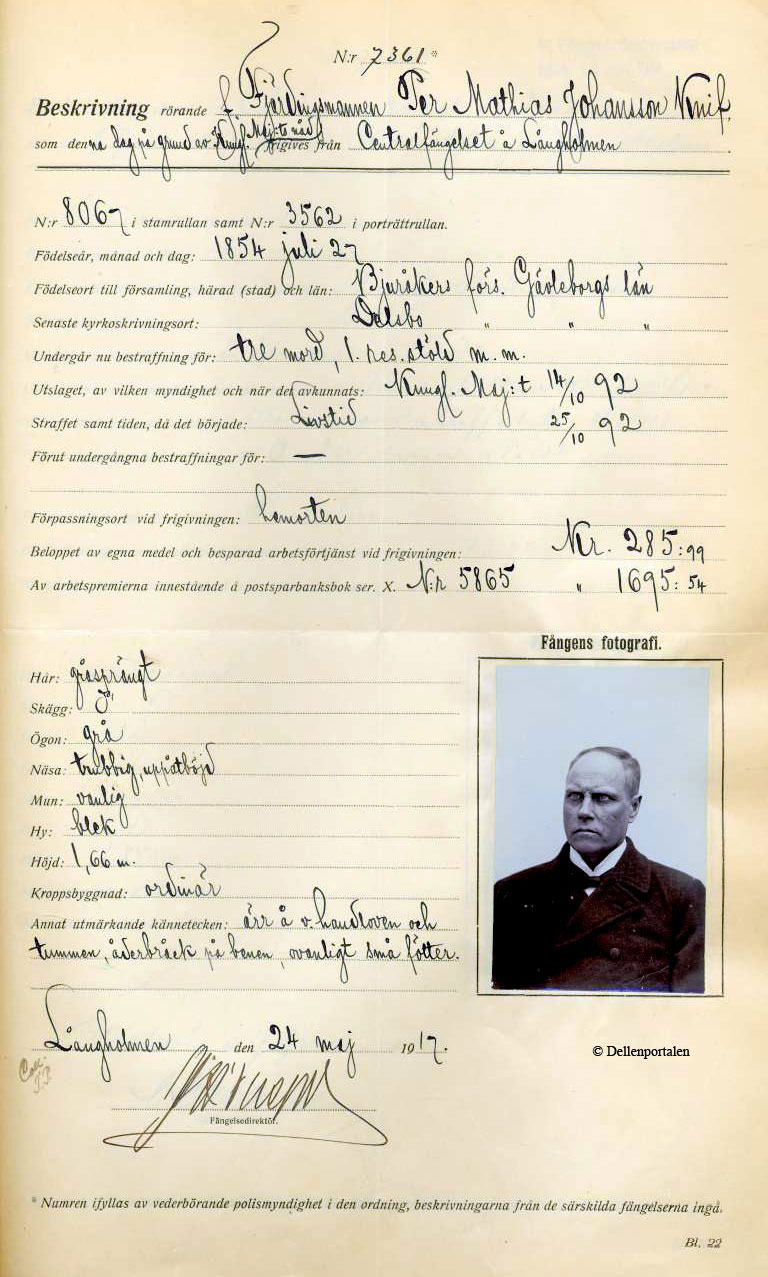 N:r 7361*
Beskrivning rörande f. Fjärdingsmannen Per Mathias Johansson Knif,
som denna dag på grund av Kungl. Maj:ts nåd frigives från Centralfängelset å Långholmen.
N:r 8067 i stamrullan samt N:r 3562 i porträttrullan.
Födelseår, månad och dag: 1854 juli 27
Födelseort till församling, härad (stad) och län: Bjuråkers förs. Gävleborgs län
Senaste kyrkoskrivningsort: Delsbo " " "
Undergår nu bestraffning för: tre mord, 1. res. stöld m. m.
Utslaget, av vilken myndighet och när det avkunnats: Kungl. Maj:t 14/10 92
Straffet samt tiden, då det började: Livstid 25/10 92
Förut undergångna bestraffningar för: —
Förpassningsort vid frigivningen: hemorten
Beloppet av egna medel och besparad arbetsförtjänst vid frigivningen: Kr. 285:99
Av arbetspremierna innestående å postsparbanksbok ser. X. N:r 5865 " 1695:54
Fångens fotografi.
Hår: gråsprängt
Skägg:
Ögon: grå
Näsa: trubbig, uppåtböjd
Mun: vanlig
Hy: blek
Höjd: 1,66 m.
Kroppsbyggnad: ordinär
Annat utmärkande kännetecken: ärr å v. handloven och
tummen, åderbråck på benen, ovanligt små fötter.
Långholmen den 24 maj 1917.
© Dellenportalen
Fängelsedirektör.
* Numren ifyllas av vederbörande polismyndighet i den ordning, beskrivningarna från de särskilda fängelserna ingå.
Bl. 22